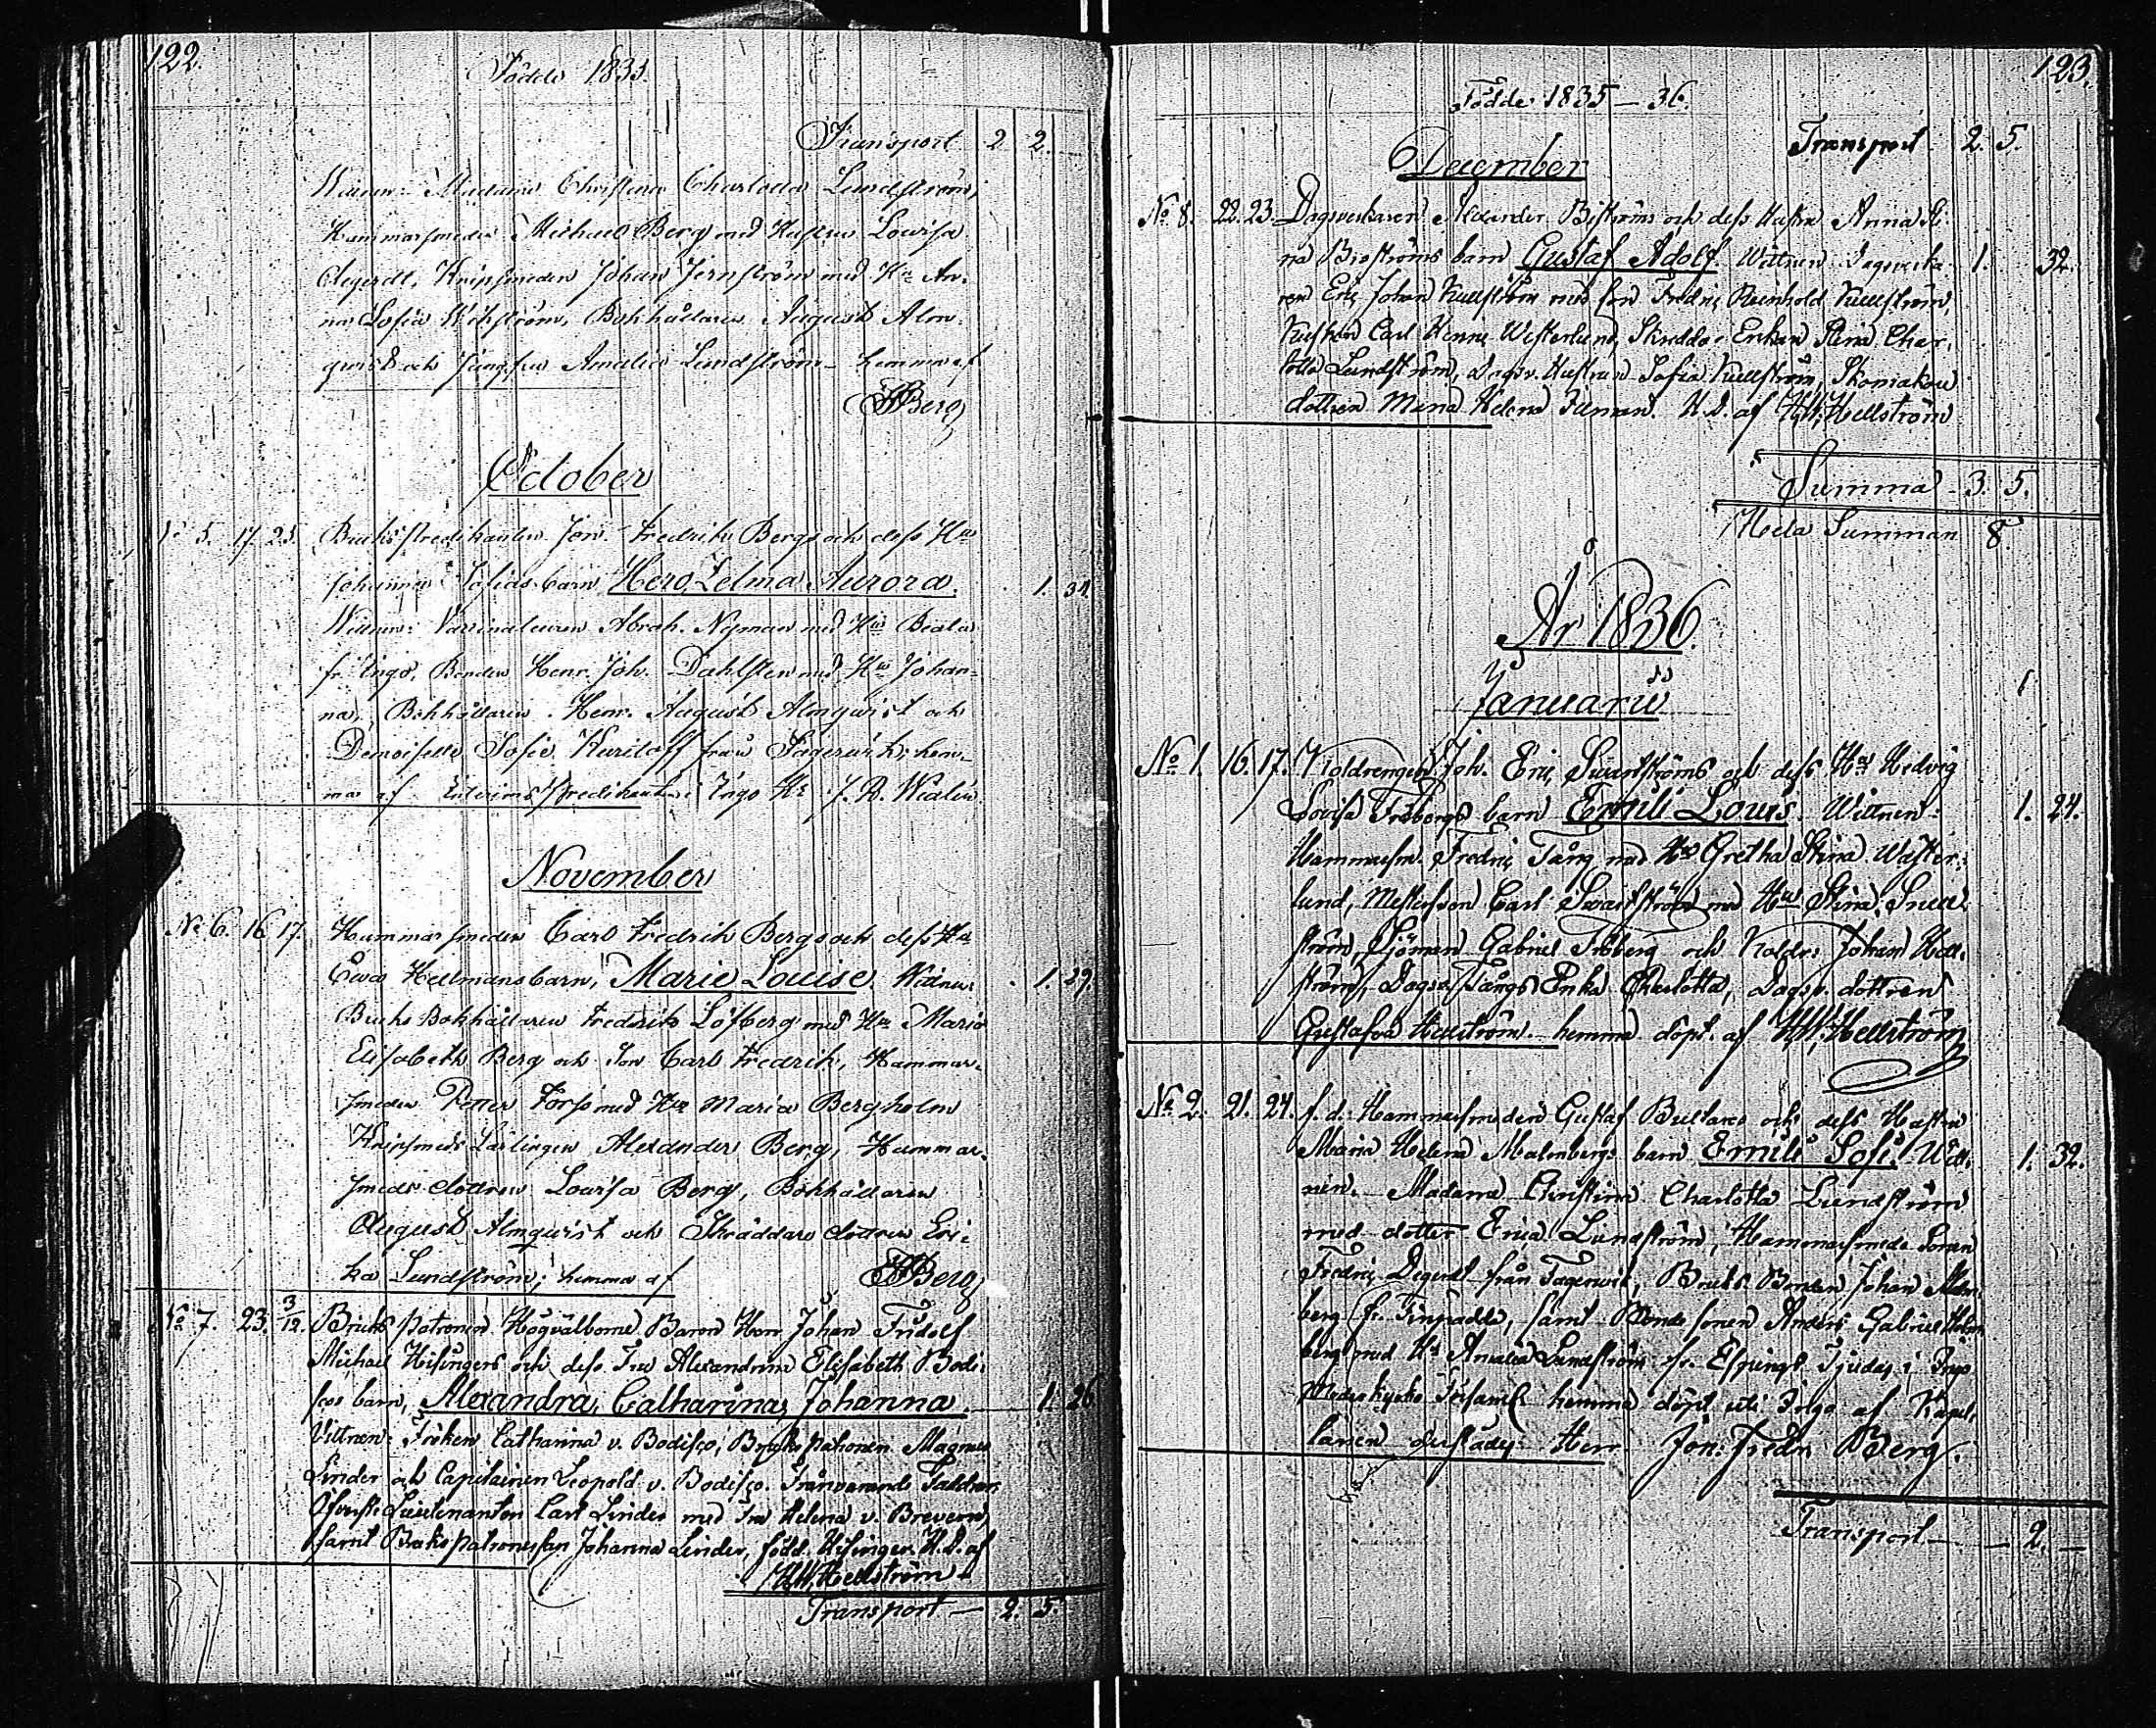 122.
Födde 1835.
Transport 2. 2.
Wittnen: Madame Christina Charlotta Lundström,
Hammarsmeden Michael Berg med Hustru Lovisa
Degerdt, Knipsmeden Johan Jernström med Hu An-
na Sofia Wikström, Bokhållaren August Alm-
qvist och Jungfru Amalia Lundström hemma af
JFBerg
October
No 5. 17. 25. Brukspredikanten Jon. Fredrik Bergs och dess Hu
Johanna Sofias barn Hero Zelma Aurora. 1. 34.
Wittnen: Abrah. Nyman med Hu Beata
fr. Ingo, Bonden Henr. Joh. Dahlsten med Hu Johan-
na, Bokhållaren Henr. August Almqvist och
Demoiselle Sofie från Fagervik; hem-
ma af predikanten i Ingo Hr J. R. Wialén
November
No 6. 16. 17. Hammarsmeden Carl Fredrik Bergs och dess Hu
Ewa Hellmans barn, Marie Louise. Wittnen: 1. 29.
Bruks Bokhållaren Fredrik Löfberg med Hu Maria
Elisabeth Berg och Son Carl Fredrik, Hammar-
smeden Petter Forss med Hu Maria Bergholm
Knipsmeds Lärlingen Alexander Berg, Hammar-
smeds dottren Lovisa Berg, Bokhållaren
August Almqvist och Skräddare dottren Eri-
ka Lundström; hemma af JFBerg
No 7. 23. 3/12. Bruks patronen Högvälborne Baron Herr Johan Fridolf
Michael Hisingers och dess Fru Alexandrine Elisabeth Bodi-
scos barn, Alexandra, Catharina, Johanna. 1. 26.
Vittnen: Fröken Catharina v. Bodisco, Brukspatronen Magnus
Linder och Capitainen Leopold v. Bodisco. Frånvarande Faddrar
Öfverste Lieutenanten Carl Linder med Fru Helena v. Brevern,
samt Brukspatronessan Johanna Linder, född Hisinger. H. D. af
HW. Hellström
Transport — 2. 5.
123.
Födde 1835—36.
Transport 2. 5.
December
No 8. 22. 23. Dagsverkaren Alexander Biströms och dess Hustru Anna Sti-
na Biströms barn Gustaf Adolf. Wittnen Dagsverka- 1. 32.
ren Eric Johan Kullström med son Fredric Reinhold Kullström,
Kusken Carl Henric Westerlund, Skreddar Enkan Stina Char-
lotta Lundström, Dagsv. Hustrun Sofia Kullström, Skomakare
dottren Maria Helena H. D. af HW. Hellström
Summa 3. 5.
Hela Summan 8.
År 1836.
Januarii
No 1. 16. 17. Koldrengen Joh. Eric Swartströms och dess Hu Hedvig
Lovisa Fribergs barn Emili Louis. Wittnen: 1. 24.
Hammarsm. Fredric Tång med Hu Gretha Stina Wäster-
lund, Carl Swartström med Hu Stina
ström, Sjöman Gabriel Friberg och Koldr: Johan Hell-
ström, Dagsv. Tångs Enka Charlotta, Dagsv. dottren
Gustafva Hellström hemma döpt. af HW. Hellström
No 2. 21. 24. f. d. Hammarsmeden Gustaf och dess Hustru
Maria Helena Malmbergs barn Emili Sofi. Witt- 1. 32.
nen. Madame Christina Charlotta Lundström
med dotter Erica Lundström, Hammarsmeds Sonen
Fredric Degerdt från Fagervik, Bruks Bonden Johan Malm-
berg fr. samt Bonde sonen Anders Gabriel Holm-
berg med Hu Amalia Lundström fr. i Ingo
hemma döpt uti Ingo af Kapel-
lanen Herr Jon. Fredr. Berg.
Transport — 2. —